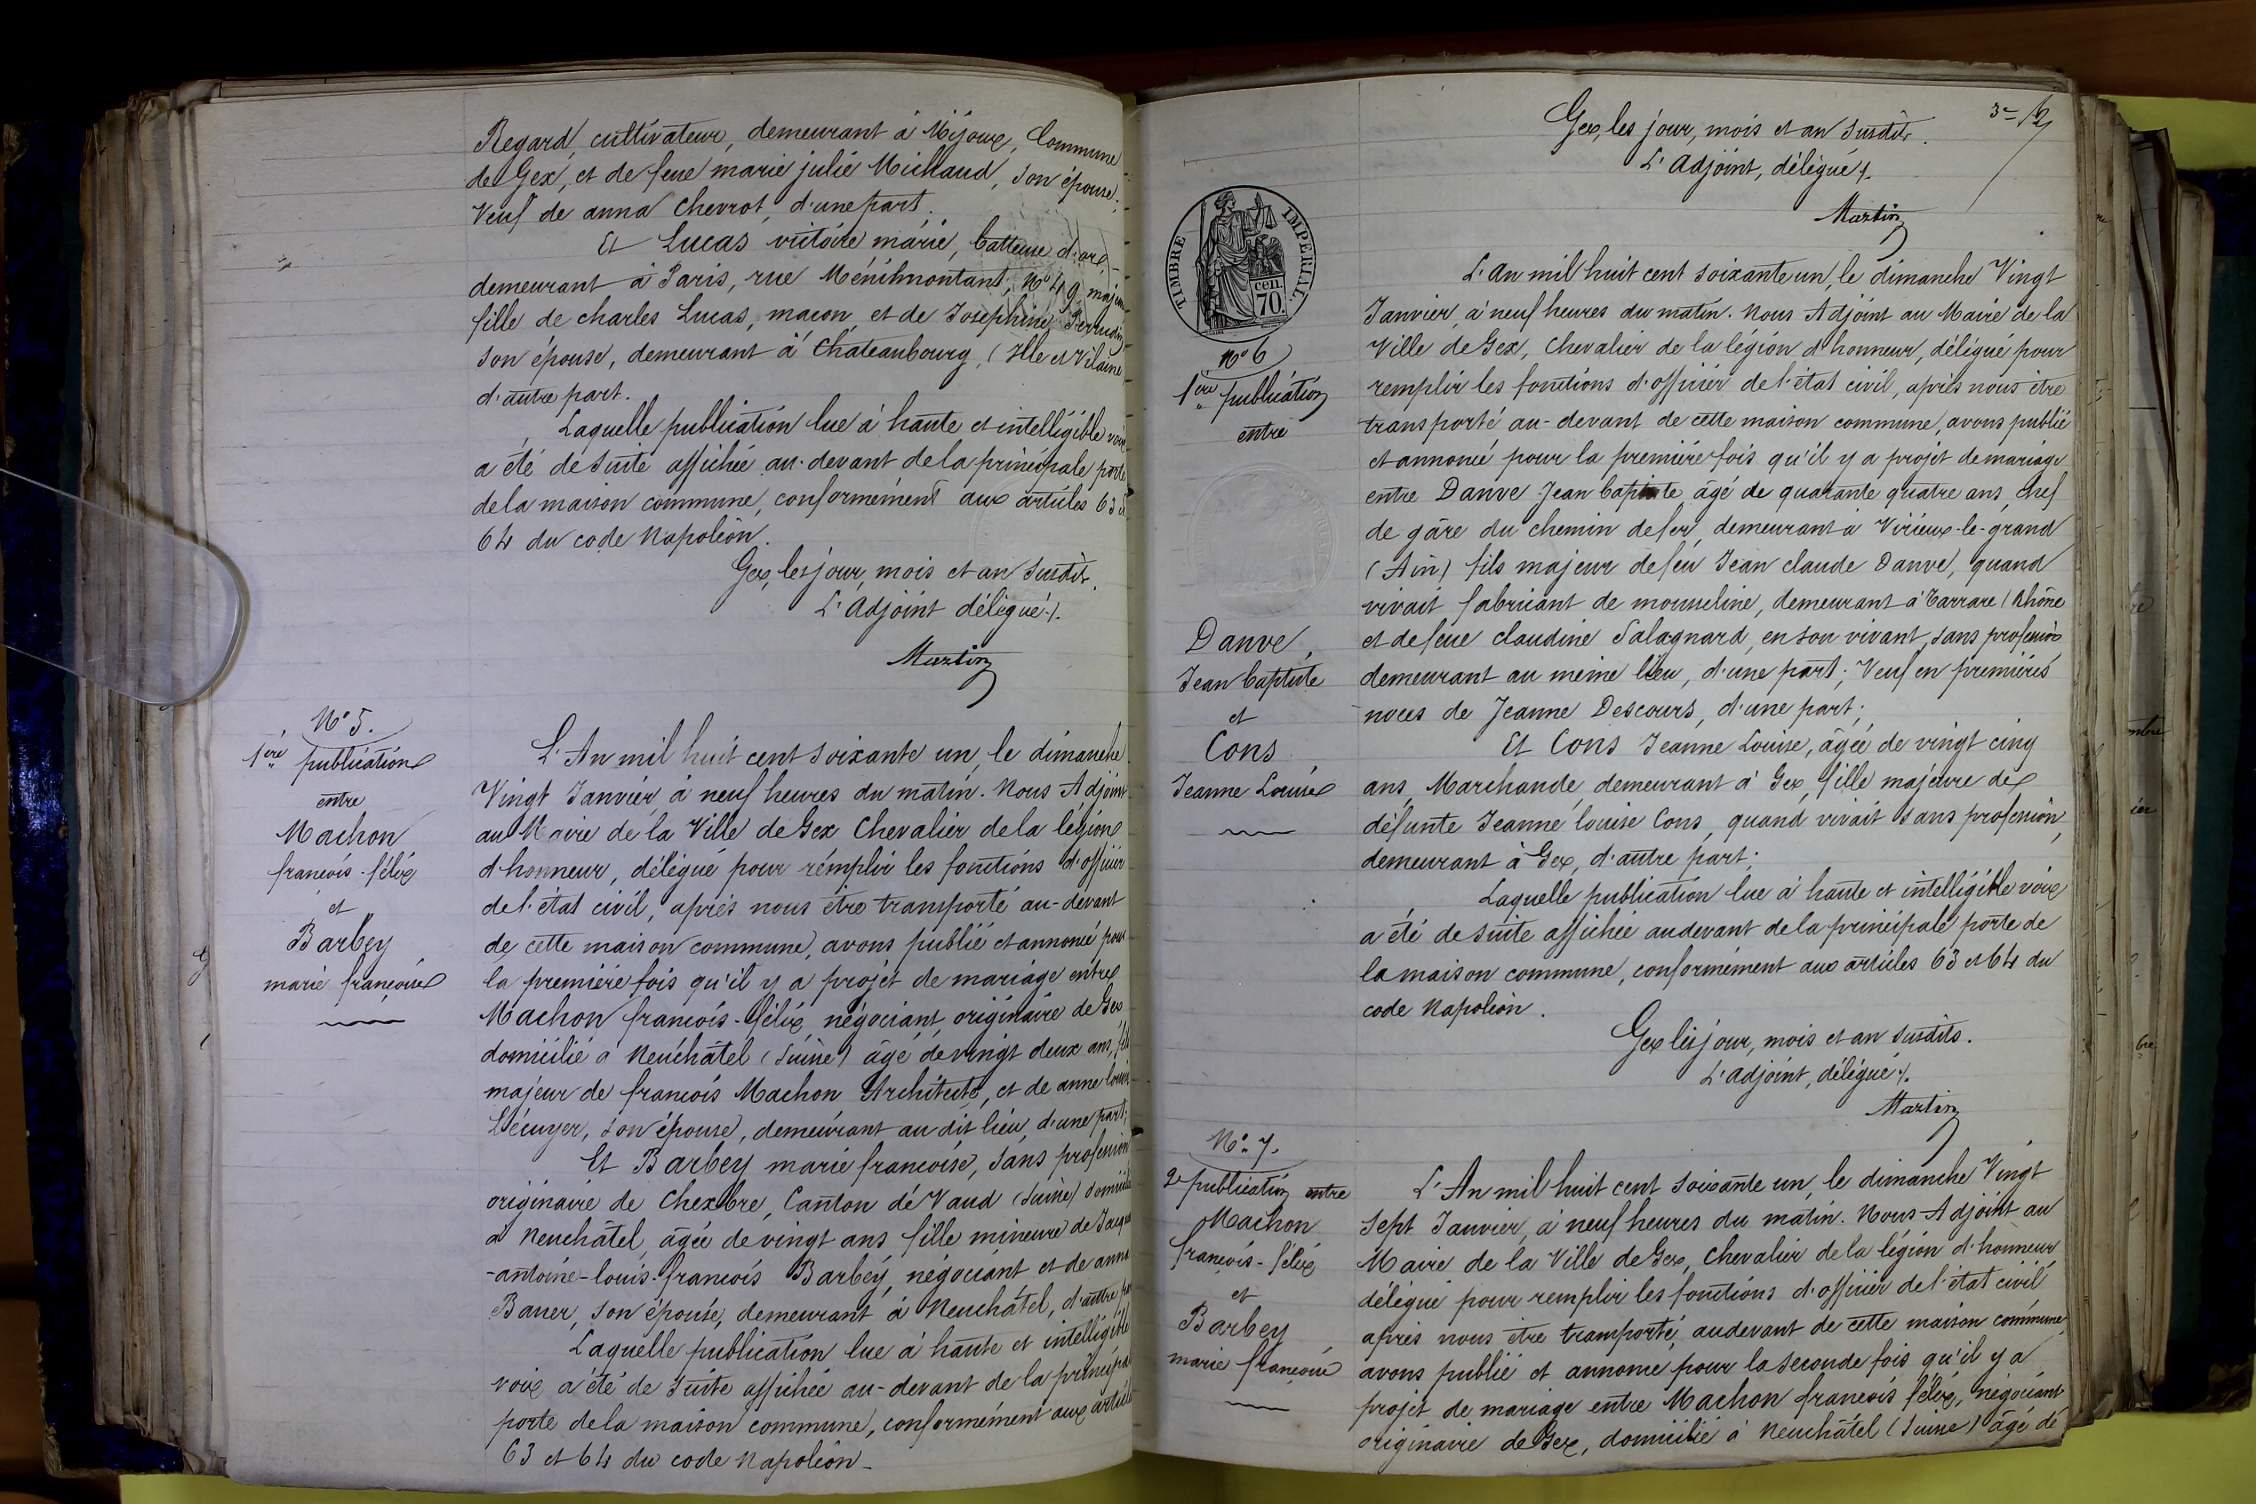 Regard, cultivateur, demeurant à Mijoux, Commune
de Gex, et de feue marie julie Michaud, son épouse,
Veuf de anna Chevrot, d'une part.
Et Lucas victoire marie, batteuse d'or,
demeurant à Paris, rue Ménilmontant, N° 49, majeure
fille de charles Lucas, maçon, et de Joséphine
son épouse, demeurant à Chateaubourg, (Ille et Vilaine
d'autre part.
Laquelle publication lue à haute et intelligible voix
a été de suite affichée au-devant de la principale porte
de la maison commune, conformément aux articles 63 et
64 du code Napoléon.
Gex, les jour, mois et an susdits.
L'Adjoint délégué ./.
Martin
N° 5.
1ère publication
entre
Machon
françois-félix
et
Barbey
marie françoise
L'An mil huit cent soixante un, le dimanche
Vingt Janvier, à neuf heures du matin. Nous Adjoint
au Maire de la Ville de Gex Chevalier de la légion
d'honneur, délégué pour remplir les fonctions d'officier
de l'état civil, après nous être transporté au-devant
de cette maison commune, avons publié et annoncé pour
la première fois qu'il y a projet de mariage entre
Machon françois-félix, négociant, originaire de Gex,
domicilié à Neuchâtel (Suisse) âgé de vingt deux ans, fils
majeur de françois Machon Architecte, et de anne louise
Lécuyer, son épouse, demeurant au dit lieu, d'une part;
Et Barbey marie françoise, sans profession
originaire de Chexbre, Canton de Vaud (Suisse) domiciliée
à Neuchâtel, âgée de vingt ans fille mineure de Jacques
-antoine-louis-françois Barbey, négociant et de anna
Baner, son épouse, demeurant à Neuchâtel, d'autre part
Laquelle publication lue à haute et intelligible
voix a été de suite affichée au-devant de la principale
porte de la maison commune, conformément aux articles
63 et 64 du code Napoléon_
3e
Gex, les jour, mois et an susdits.
L'Adjoint, délégué ./.
Martin
TIMBRE IMPERIAL
cen.
70.
N° 6
1ère publication
entre
Danve,
Jean baptiste
et
Cons
Jeanne Louise
L'An mil huit cent soixante un, le dimanche Vingt
Janvier, à neuf heures du matin. Nous Adjoint au Maire de la
Ville de Gex, Chevalier de la légion d'honneur, délégué pour
remplir les fonctions d'officier de l'état civil, après nous être
transporté au-devant de cette maison commune, avons publié
et annoncé pour la première fois qu'il y a projet de mariage
entre Danve Jean baptiste, âgé de quarante quatre ans, chef
de gare du chemin de fer, demeurant à Virieux-le-grand
(Ain) fils majeur de feu Jean claude Danve, quand
vivait fabricant de mousseline, demeurant à Tarrare (Rhône
et de feue claudine Salagnard, en son vivant, sans profession
demeurant au même lieu, d'une part; Veuf en premières
noces de Jeanne Descours, d'une part;
Et Cons Jeanne Louise, âgée de vingt cinq
ans, Marchande, demeurant à Gex, fille majeure de
défunte Jeanne louise Cons, quand vivait sans profession,
demeurant à Gex, d'autre part;
Laquelle publication lue à haute et intelligible voix
a été de suite affichée au devant de la principale porte de
la maison commune, conformément aux articles 63 et 64 du
code Napoléon.
Gex les jour, mois et an susdits.
L'adjoint, délégué ./.
Martin
N° 7.
2e publication entre
Machon
françois-félix
et
Barbey
marie françoise
L'An mil huit cent soixante un, le dimanche Vingt
sept Janvier, à neuf heures du matin. Nous Adjoint au
Maire de la Ville de Gex, Chevalier de la légion d'honneur,
délégué pour remplir les fonctions d'officier de l'état civil
après nous être transporté, au devant de cette maison commune,
avons publié et annoncé pour la seconde fois qu'il y a
projet de mariage entre Machon françois félix, négociant
originaire de Gex, domicilié à Neuchâtel (Suisse) âgé de